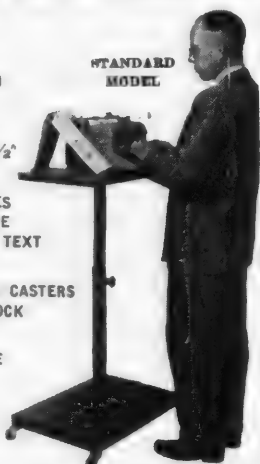 STANDARD
MODEL
½"
ES
E
TEXT
CASTERS
OCK
E